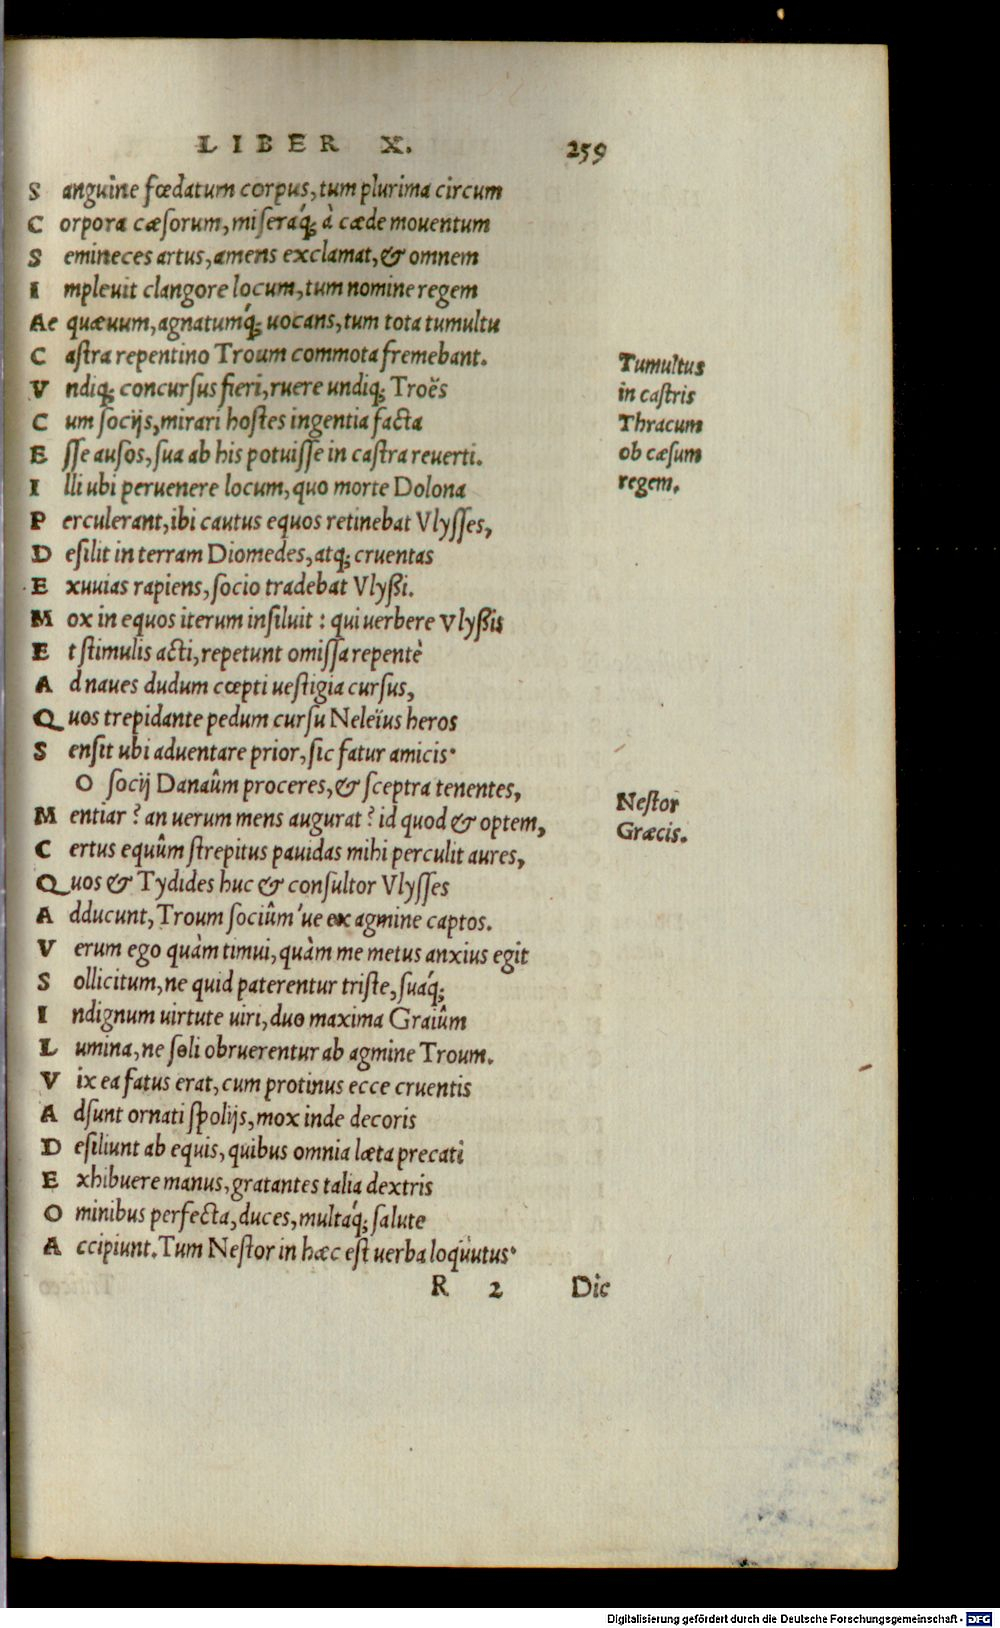 LIBER X. 259
Sanguine fœdatum corpus, tum plurima circum
Corpora cæſorum, miſeráq; à cæde mouentum
Semineces artus, amens exclamat, & omnem
Impleuit clangore locum, tum nomine regem
Aequæuum, agnatumq́; uocans, tum tota tumultu
Caſtra repentino Troum commota fremebant.
Vndiq; concurſus fieri, ruere undiq; Troës
Cum ſocijs, mirari hoſtes ingentia facta
Eſſe auſos, ſua ab his potuiſſe in caſtra reuerti.
Illi ubi peruenere locum, quo morte Dolona
Perculerant, ibi cautus equos retinebat Vlyſſes,
Deſilit in terram Diomedes, atq; cruentas
Exuuias rapiens, ſocio tradebat Vlyßi.
Mox in equos iterum inſiluit : qui uerbere Vlyßis
Et ſtimulis acti, repetunt omiſſa repentè
Ad naues dudum cœpti ueſtigia curſus,
Quos trepidante pedum curſu Neleïus heros
Senſit ubi aduentare prior, ſic fatur amicis·
O ſocij Danaûm proceres, & ſceptra tenentes,
Mentiar? an uerum mens augurat? id quod & optem,
Certus equûm ſtrepitus pauidas mihi perculit aures,
Quos & Tydides huc & conſultor Vlyſſes
Adducunt, Troum ſociûm'ue ex agmine captos.
Verum ego quàm timui, quàm me metus anxius egit
Sollicitum, ne quid paterentur triſte, ſuáq;
Indignum uirtute uiri, duo maxima Graiûm
Lumina, ne ſoli obruerentur ab agmine Troum.
Vix ea fatus erat, cum protinus ecce cruentis
Adſunt ornati ſpolijs, mox inde decoris
Deſiliunt ab equis, quibus omnia læta precati
Exhibuere manus, gratantes talia dextris
Ominibus perfecta, duces, multáq; ſalute
Accipiunt. Tum Neſtor in hæc eſt uerba loquutus·
R 2 Dic
Tumultus
in caſtris
Thracum
ob cæſum
regem.
Neſtor
Græcis.
Digitalisierung gefördert durch die Deutsche Forschungsgemeinschaft - DFG